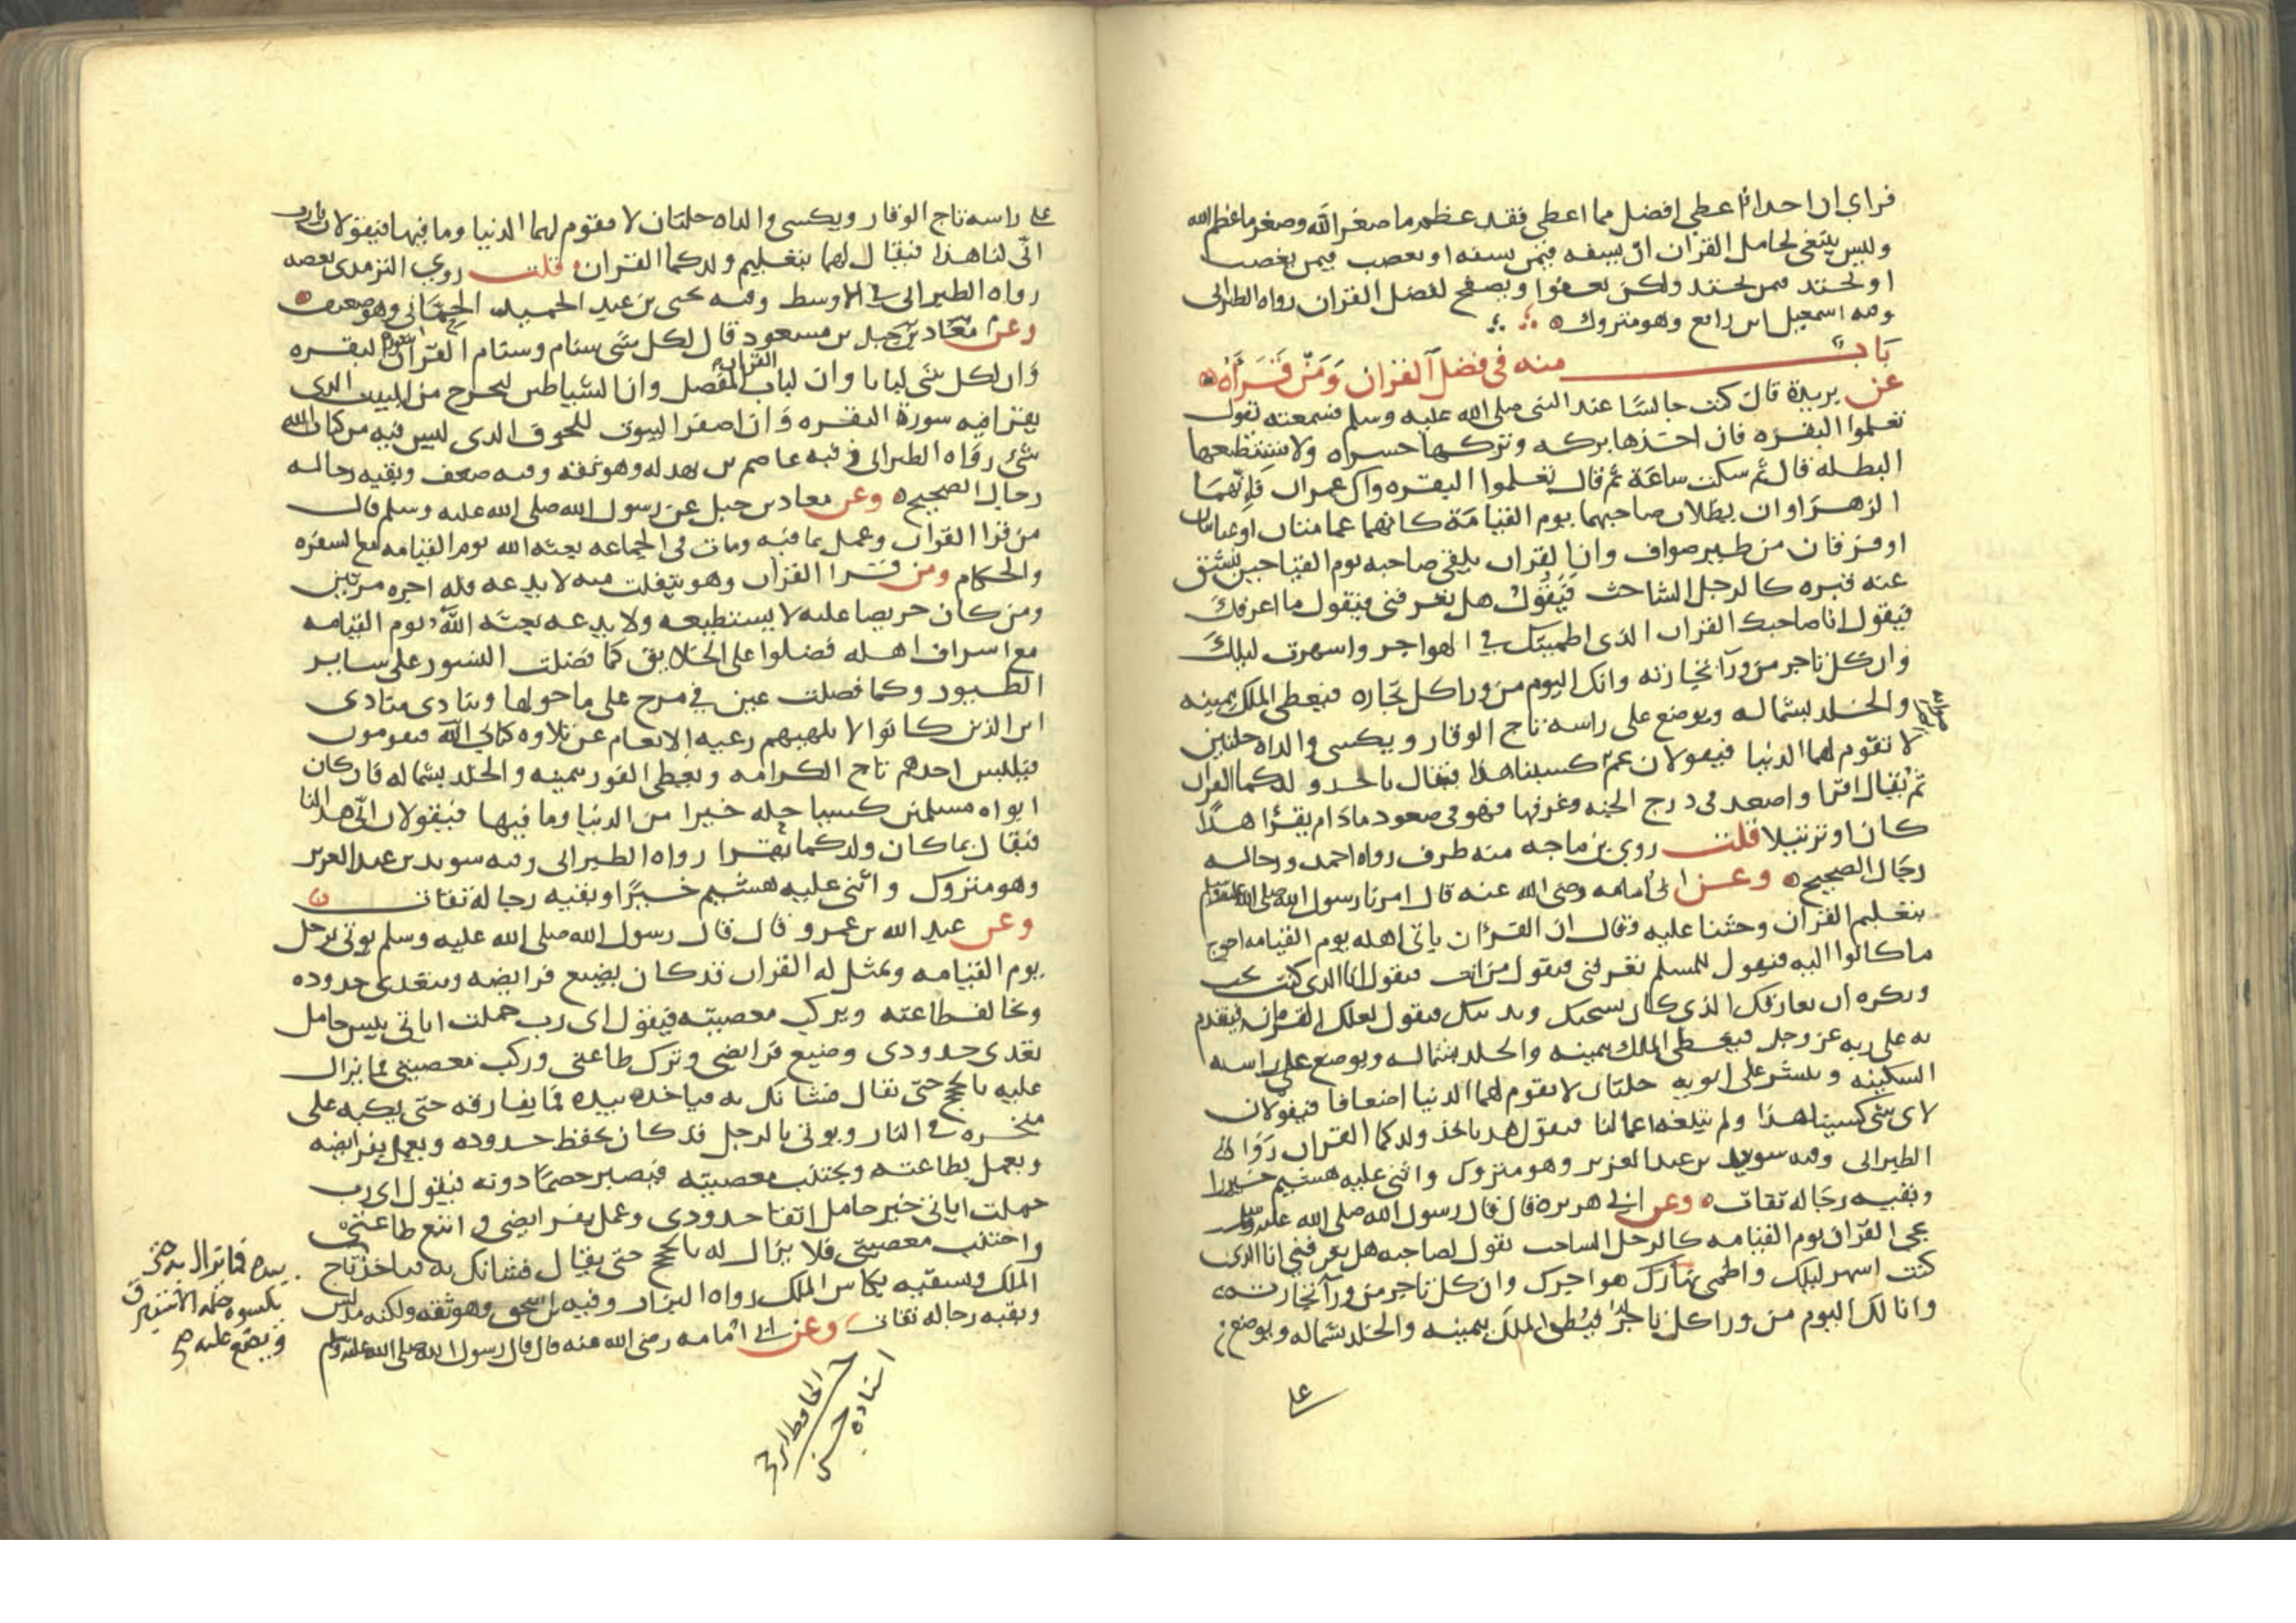 فراي ان احدا اعطي افضل مما اعطى فقد عظم ما صغر الله وصغر ما عظم الله
وليس ينبغي لحامل القران ان يسفه فيمن يسفه او يغضب فيمن يغضب
او يحتد فيمن يحتد ولكن يعفوا ويصفح لفضل القران رواه الطبراني
وفيه اسمعيل بن رافع وهو متروك
باب منه في فضل القران ومن قرأه
عن بريدة قال كنت جالسا عند النبي صلى الله عليه وسلم فسمعته يقول
تعلموا البقره فان اخذها بركه وتركها حسره ولا تستطيعها
البطله قال ثم سكت ساعة ثم قال تعلموا البقره وال عمران فانهما
الزهراوان يظلان صاحبهما يوم القيامة كانهما غمامتان او غيايتان
او فرقان من طير صواف وان القران يلقى صاحبه يوم القيا حين ينشق
عنه قبره كالرجل الشاحب فيقول هل تعرفني فيقول ما اعرفك
فيقول انا صاحبك القران الذي اظميتك في الهواجر واسهرت ليلك
وان كل تاجر من ورآ تجارته وانك اليوم من ورا كل تجاره فيعطى الملك بيمينه
والخلد بشماله ويوضع على راسه تاج الوقار ويكسى والداه حلتين
لا تقوم لهما الدنيا فيقولان عم كسبنا هذا فيقال باخذ ولدكما القران
ثم يقال اقرا واصعد في درج الجنه وغرفها فهو في صعود مادام يقرا هذًا
كان او ترتيلا قلت روى بن ماجه منه طرف رواه احمد ورجاله
رجال الصحيح وعن ابي امامه رضي الله عنه قال امرنا رسول الله صلى الله عليه وسلم
بتعليم القران وحثنا عليه وقال ان القران ياتي اهله يوم القيامه احوج
ما كانوا اليه فيقول للمسلم تعرفني فيقول من انت فيقول انا الذي كنت تحب
وتكره ان يفارقك الذي كان يسحبك ويدنيك فيقول لعلك القران فيقدم
به على ربه عز وجل فيعطى الملك بيمينه والخلد بشماله ويوضع على راسه
السكينه وينشر على ابويه حلتان لا تقوم لهما الدنيا اضعافا فيقولان
لاي شي كسينا هذا ولم تبلغه اعمالنا فيقول هذا باخذ ولدكما القران رواه
الطبراني وفيه سويد بن عبد العزيز وهو متروك واثنى عليه هشيم خيرا
وبقيه رجاله ثقات وعن ابي هريرة قال قال رسول الله صلى الله عليه وسلم
يجي القران يوم القيامه كالرجل الشاحب يقول لصاحبه هل تعرفني انا الذي
كنت اسهر ليلك واظمي نهارك هواجرك وان كل تاجر من ورآ تجارته
وانا لك اليوم من ورا كل تاجر فيعطى الملك بيمينه والخلد بشماله ويوضع
على
على راسه تاج الوقار ويكسى والداه حلتان لا تقوم لهما الدنيا وما فيها فيقولان يا رب
انى لنا هذا فيقال لهما بتعليم ولدكما القران قلت روى الترمذي بعضه
رواه الطبراني في الاوسط وفيه يحيى بن عبد الحميد الحماني وهو ضعيف
وعن بن مسعود قال لكل شي سنام وسنام القران البقره
وان لكل شي لبابا وان لباب القران المفصل وان الشياطين ليخرج من البيت الذي
يقرا فيه سورة البقره وان اصفر البيوت للجوف الذي ليس فيه من كتاب الله
شي رواه الطبراني وفيه عاصم بن بهدله وهو ثقه وفيه ضعف وبقيه رجاله
رجال الصحيح وعن معاذ بن جبل عن رسول الله صلى الله عليه وسلم قال
من قرا القران وعمل بما فيه ومات في الجماعه بعثه الله يوم القيامه مع السفره
والحكام ومن قرا القران وهو يتفلت منه لا يدعه فله اجره مرتين
ومن كان حريصا عليه لا يستطيعه ولا يدعه بعثه الله يوم القيامه
مع اسراف اهله فضلوا على الخلايق كما فضلت النسور على ساير
الطيور وكما فضلت عين في مرج على ما حولها وينادي منادي
اين الذين كانوا لا تلهيهم رعيه الانعام عن تلاوه كتابي الله فيقومون
فيلبس احدهم تاج الكرامه ويعطى الفوز بيمينه والخلد بشماله فان كان
ابواه مسلمين كسيا حله خيرا من الدنيا وما فيها فيقولان انى هذا لنا
فيقال بما كان ولدكما يقرا رواه الطبراني وفيه سويد بن عبد العزيز
وهو متروك واثنى عليه هشيم خيرًا وبقيه رجاله ثقات
وعن عبد الله بن عمرو قال قال رسول الله صلى الله عليه وسلم يوتى برجل
يوم القيامه ويمثل له القران قد كان يضيع فرايضه ويتعدى حدوده
ويخالف طاعته ويركب معصيته فيقول اي رب حملت اياتي بيس حامل
تعدى حدودي وضيع فرايضي وترك طاعتي وركب معصيتي فما يزال
عليه بالحجج حتى يقال فشانك به فياخذه بيده فما يفارقه حتى يكبه على
منخره في النار ويوتى بالرجل قد كان يحفظ حدوده ويعمل بفرايضه
ويعمل بطاعته ويجتنب معصيته فيصير خصمًا دونه فيقول اي رب
حملت اياتي خير حامل اتقا حدودي وعمل بفرايضي واتبع طاعتي
واجتنب معصيتي فلا يزال له بالحجج حتى يقال فشانك به فياخذ تاج
الملك ويسقيه بكاس الملك رواه البزار وفيه بن اسحق وهو ثقه ولكنه مدلس
وبقيه رجاله ثقات وعن ابي امامه رضي الله عنه قال قال رسول الله صلى الله عليه وسلم
بيده فما يزال به حتى
يكسوه حله الاستبرق
ويضع عليه
اسناده
حسن